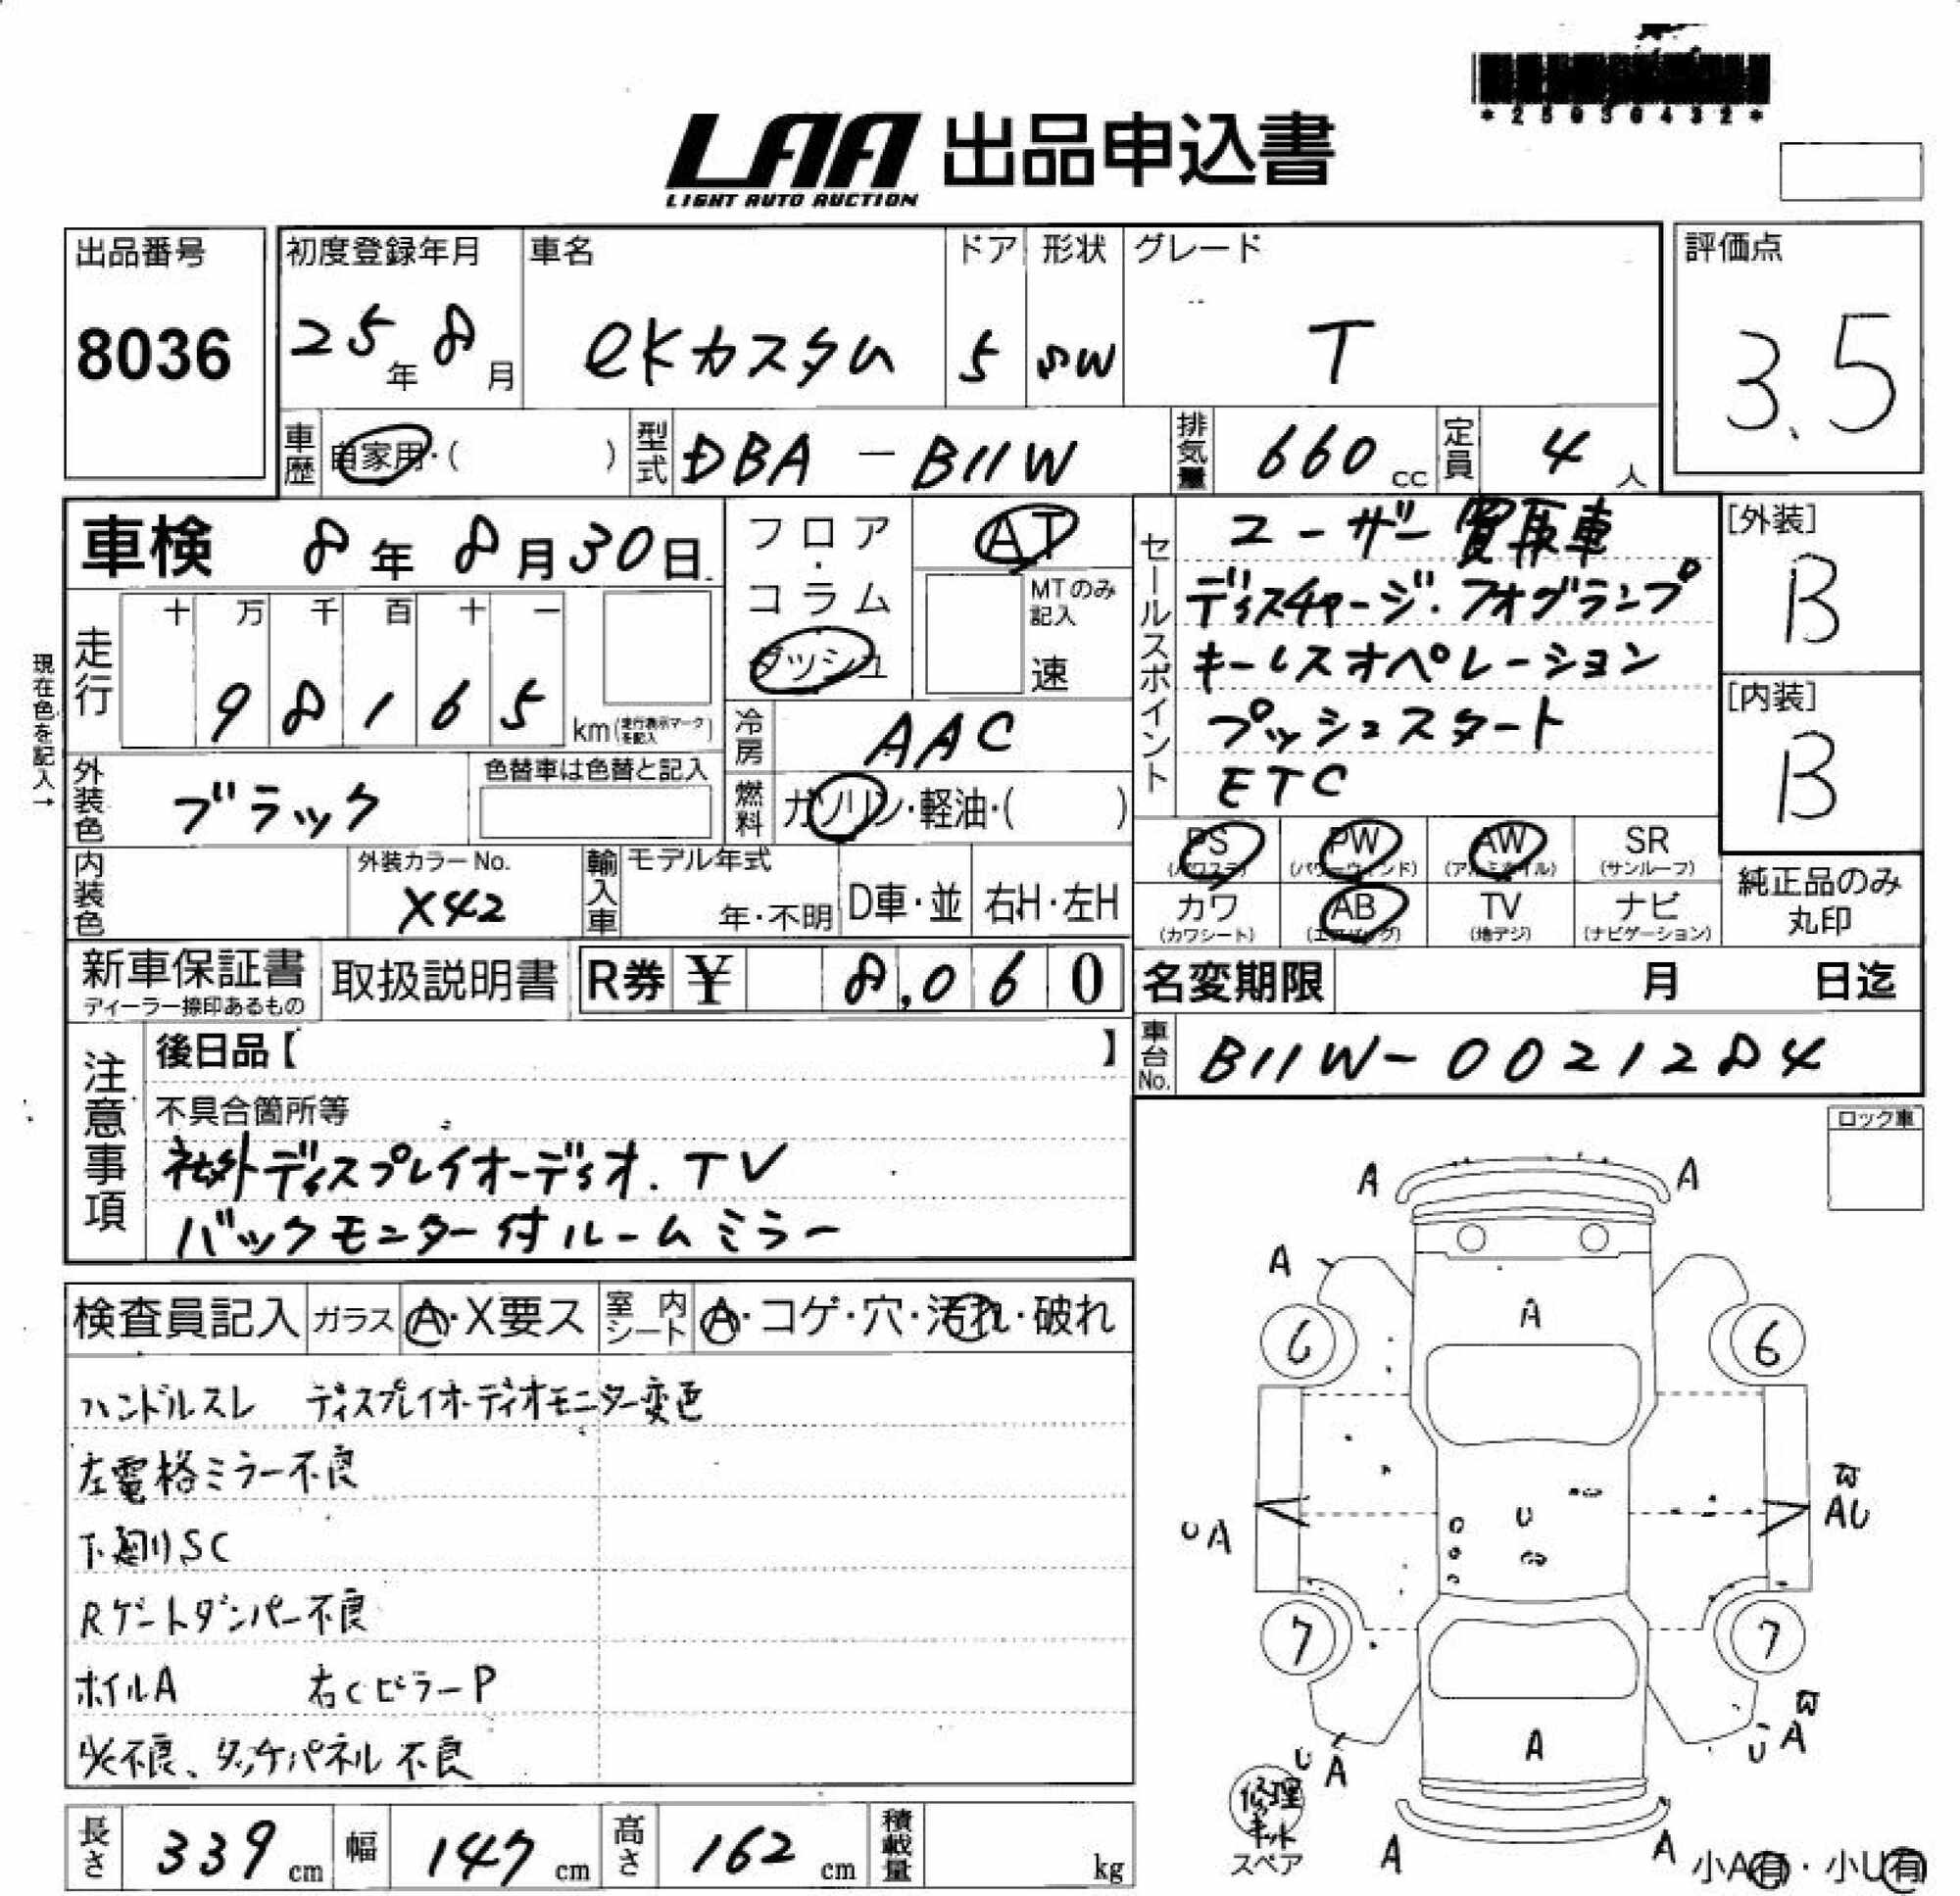 *25030432*
LAA 出品申込書
LIGHT AUTO AUCTION
出品番号
8036
初度登録年月
25年 8月
車名
eKカスタム
ドア
5
形状
SW
グレード
T
評価点
3.5
車歴 自家用・( )
型式 DBA-B11W
排気量 660cc
定員 4人
車検 8年 8月30日
現在色を記入→
走行
十 万 千 百 十 一
9 8 1 6 5 km(走行表示マークを記入)
フロア・コラム
ダッシュ
AT
MTのみ記入
速
冷房 AAC
燃料 ガソリン・軽油・( )
外装色 ブラック
色替車は色替と記入
内装色
外装カラーNo.
X42
輸入車
モデル年式
年・不明
D車・並
右H・左H
セールスポイント
ユーザー買取車
ディスチャージ.フォグランプ
キーレスオペレーション
プッシュスタート
ETC
[外装]
B
[内装]
B
PS (パワステ)
PW (パワーウィンド)
AW (アルミホイル)
SR (サンルーフ)
カワ (カワシート)
AB (エアバッグ)
TV (地デジ)
ナビ (ナビゲーション)
純正品のみ丸印
新車保証書
ディーラー捺印あるもの
取扱説明書
R券 ¥ 8,060
名変期限 月 日迄
車台No. B11W-0021284
注意事項
後日品【 】
不具合箇所等
社外ディスプレイオーディオ.TV
バックモニター付ルームミラー
ロック車
検査員記入
ガラス A・X要ス
室内シート A・コゲ・穴・汚れ・破れ
ハンドルスレ ディスプレイオーディオモニター変色
左電格ミラー不良
下廻りSC
Rゲートダンパー不良
ホイルA 右CピラーP
タッチパネル不良
長さ 339cm
幅 147cm
高さ 162cm
積載量 kg
A A
A
A
6 6
U
UA
AU
7 7
A
UA
UA
修理キット
スペア
A A
小A有・小U有